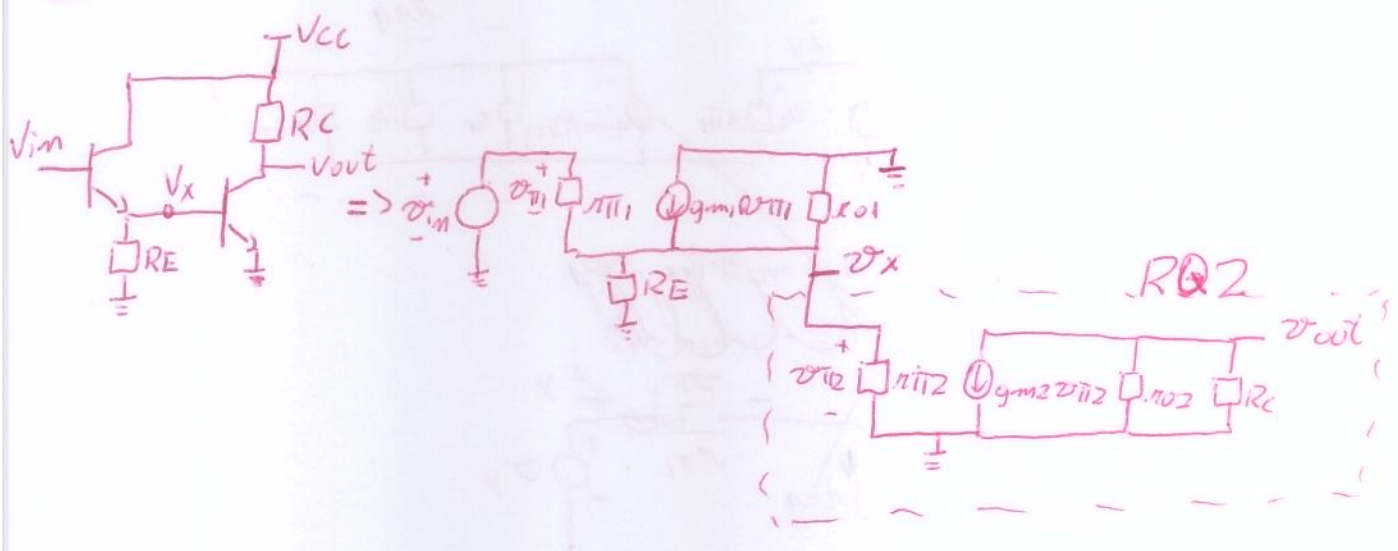 VCC
RC
Vin
Vout
Vx
RE
=>
+
vin
-
+
vπ1
-
rπ1
gm1vπ1
ro1
RE
vx
RQ2
+
vπ2
-
rπ2
gm2vπ2
ro2
RC
vout